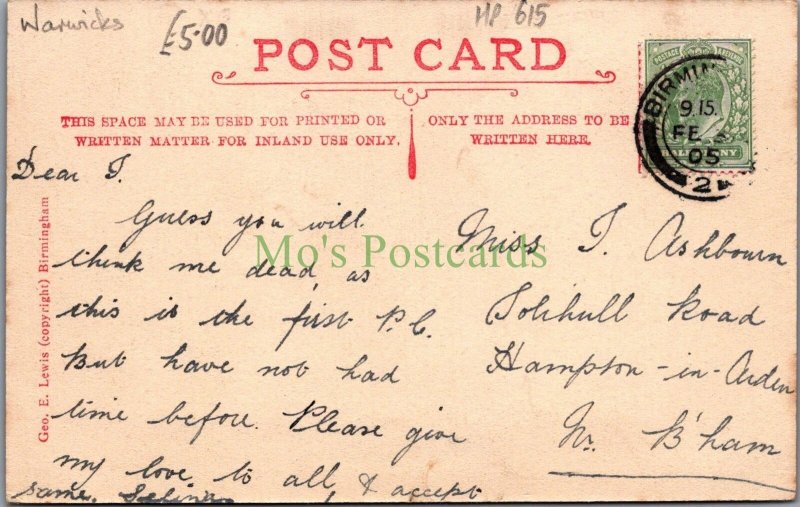 Warwicks
£5.00
HP 615
POST CARD
THIS SPACE MAY BE USED FOR PRINTED OR
WRITTEN MATTER FOR INLAND USE ONLY.
ONLY THE ADDRESS TO BE
WRITTEN HERE.
BIRMIN
9.15.
FE
05
2
HALFPENNY
Geo. E. Lewis (copyright) Birmingham
Dear I.
Guess you will
think me dead, as
this is the first P.C.
but have not had
time before. Please give
my love to all, & accept
same. Selina
Miss I. Ashbourn
Solihull Road
Hampton-in-Arden
Nr. B'ham
Mo's Postcards